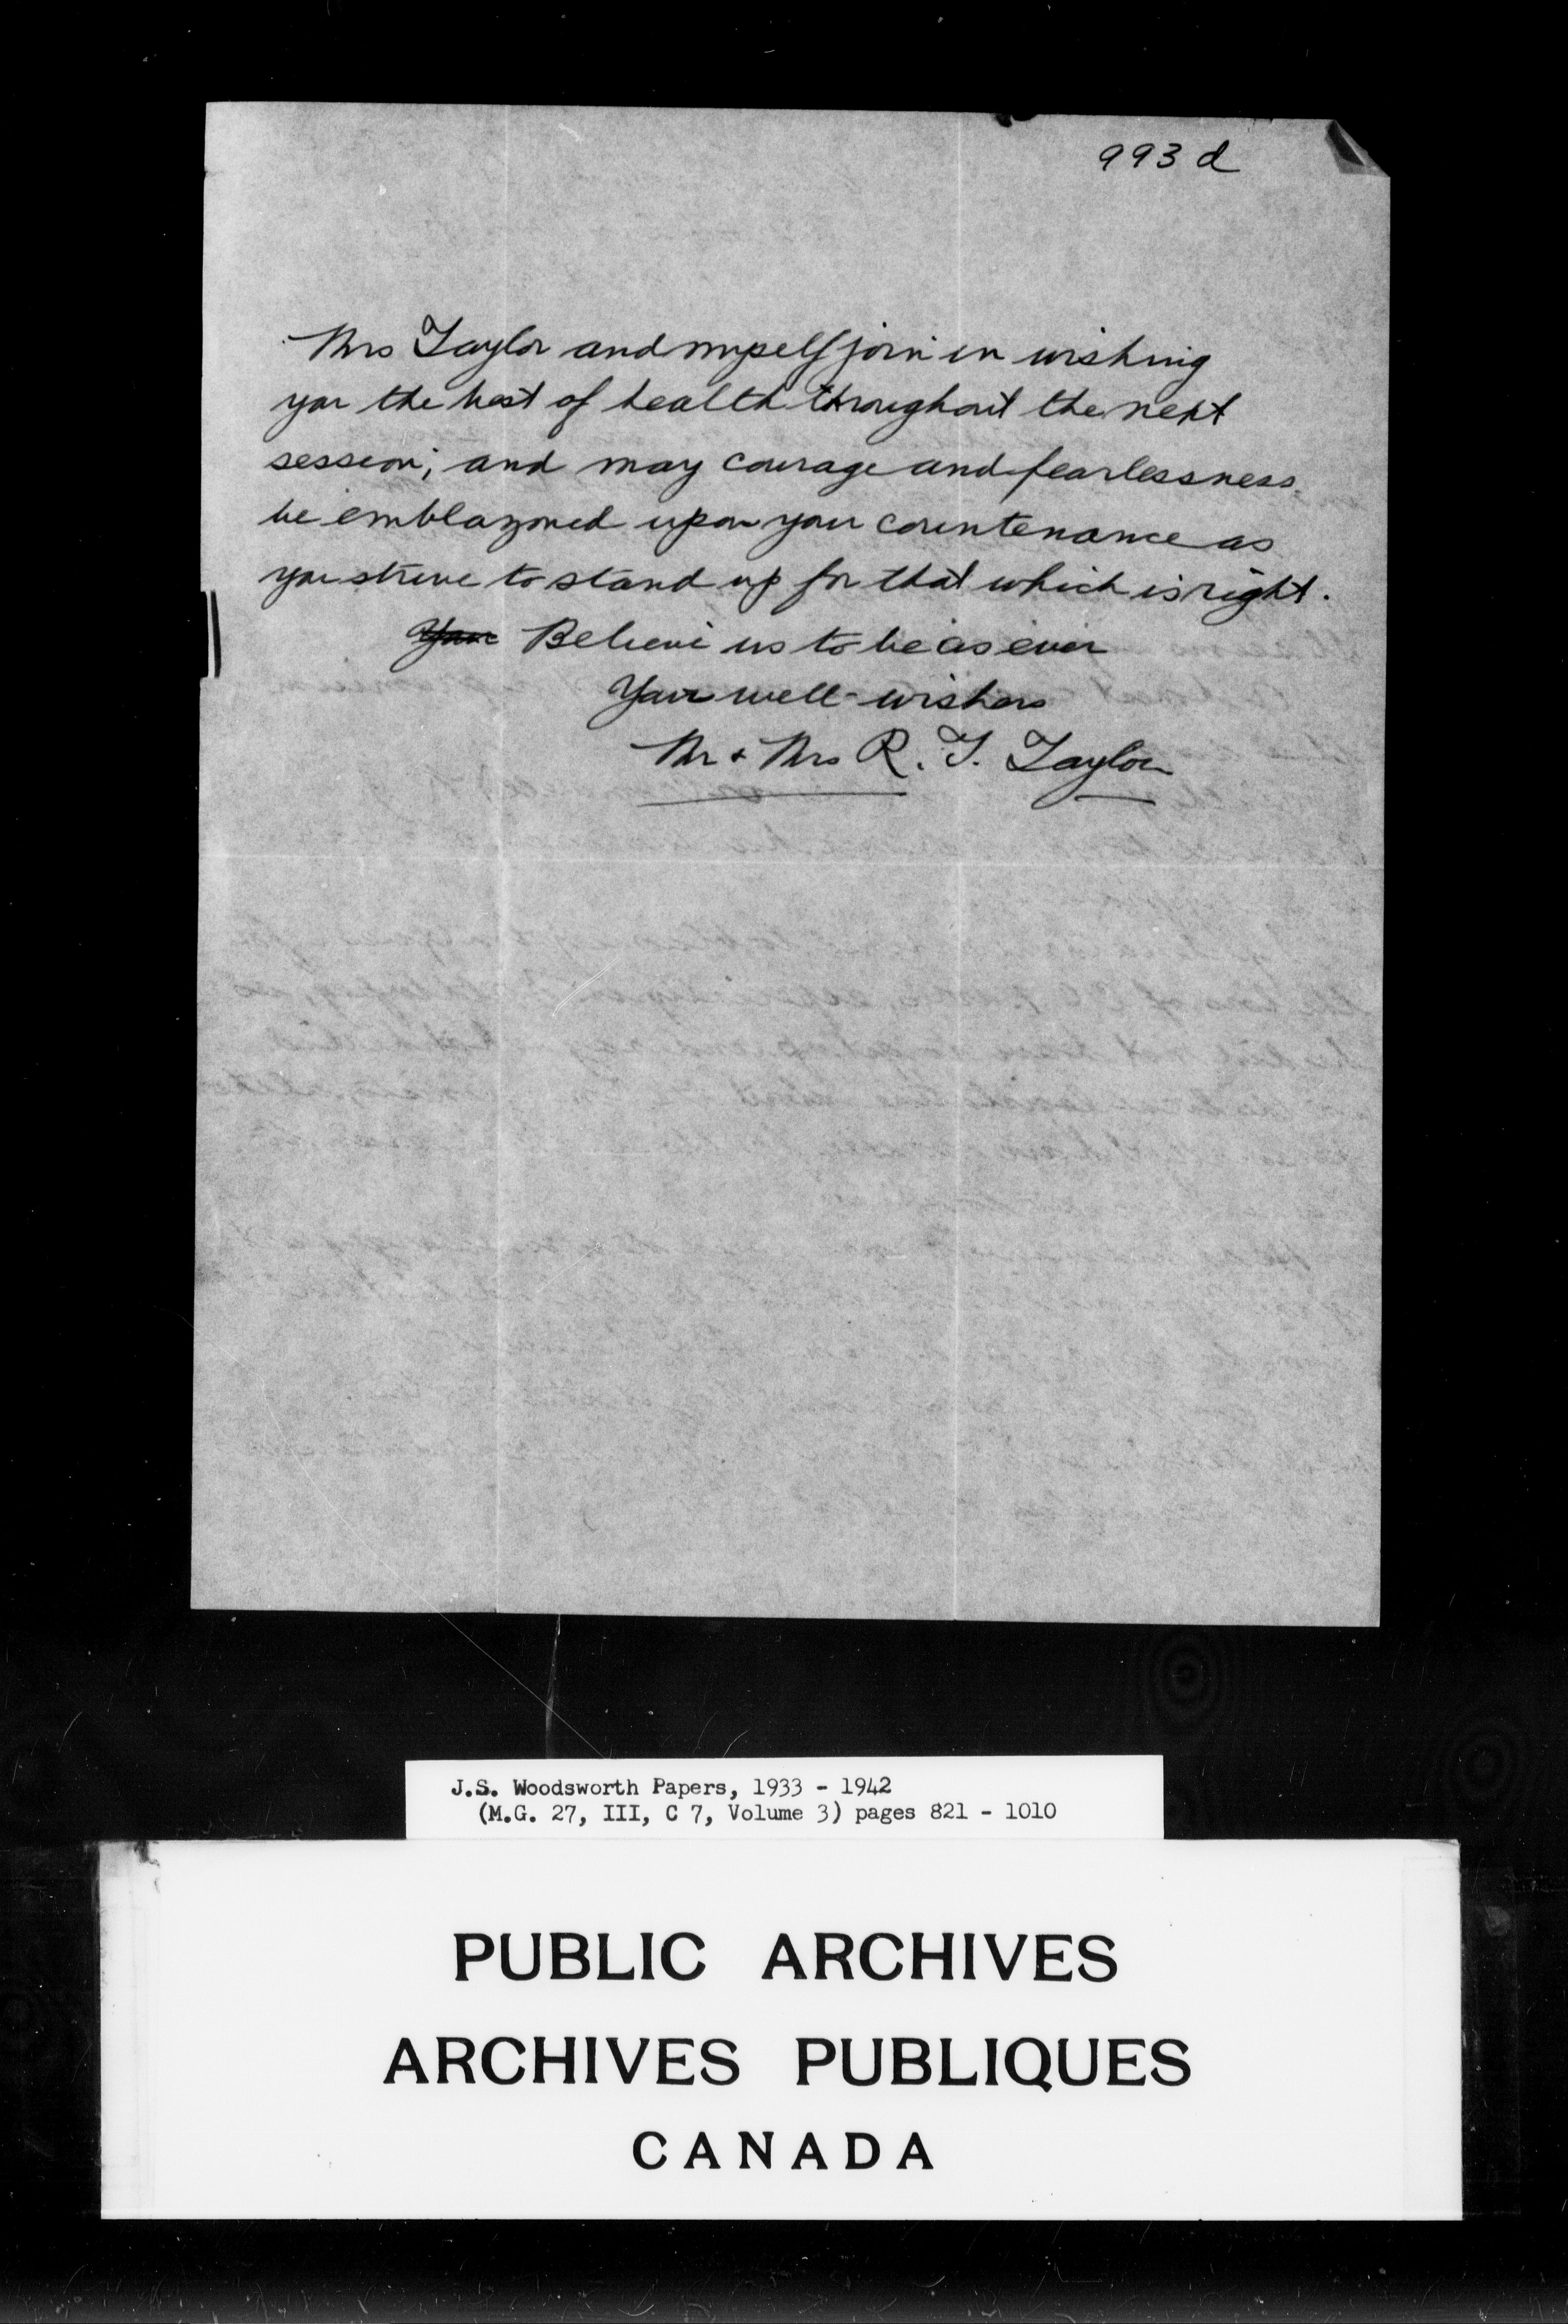 993 d
Mrs Taylor and myself join in wishing
you the best of health throughout the next
session; and may courage and fearlessness
be emblazoned upon your countenance as
you strive to stand up for that which is right.
Your Believe us to be as ever
Your well-wishers
Mr + Mrs R. T. Taylor
J.S. Woodsworth Papers, 1933 - 1942
(M.G. 27, III, C 7, Volume 3) pages 821 - 1010
PUBLIC ARCHIVES
ARCHIVES PUBLIQUES
CANADA